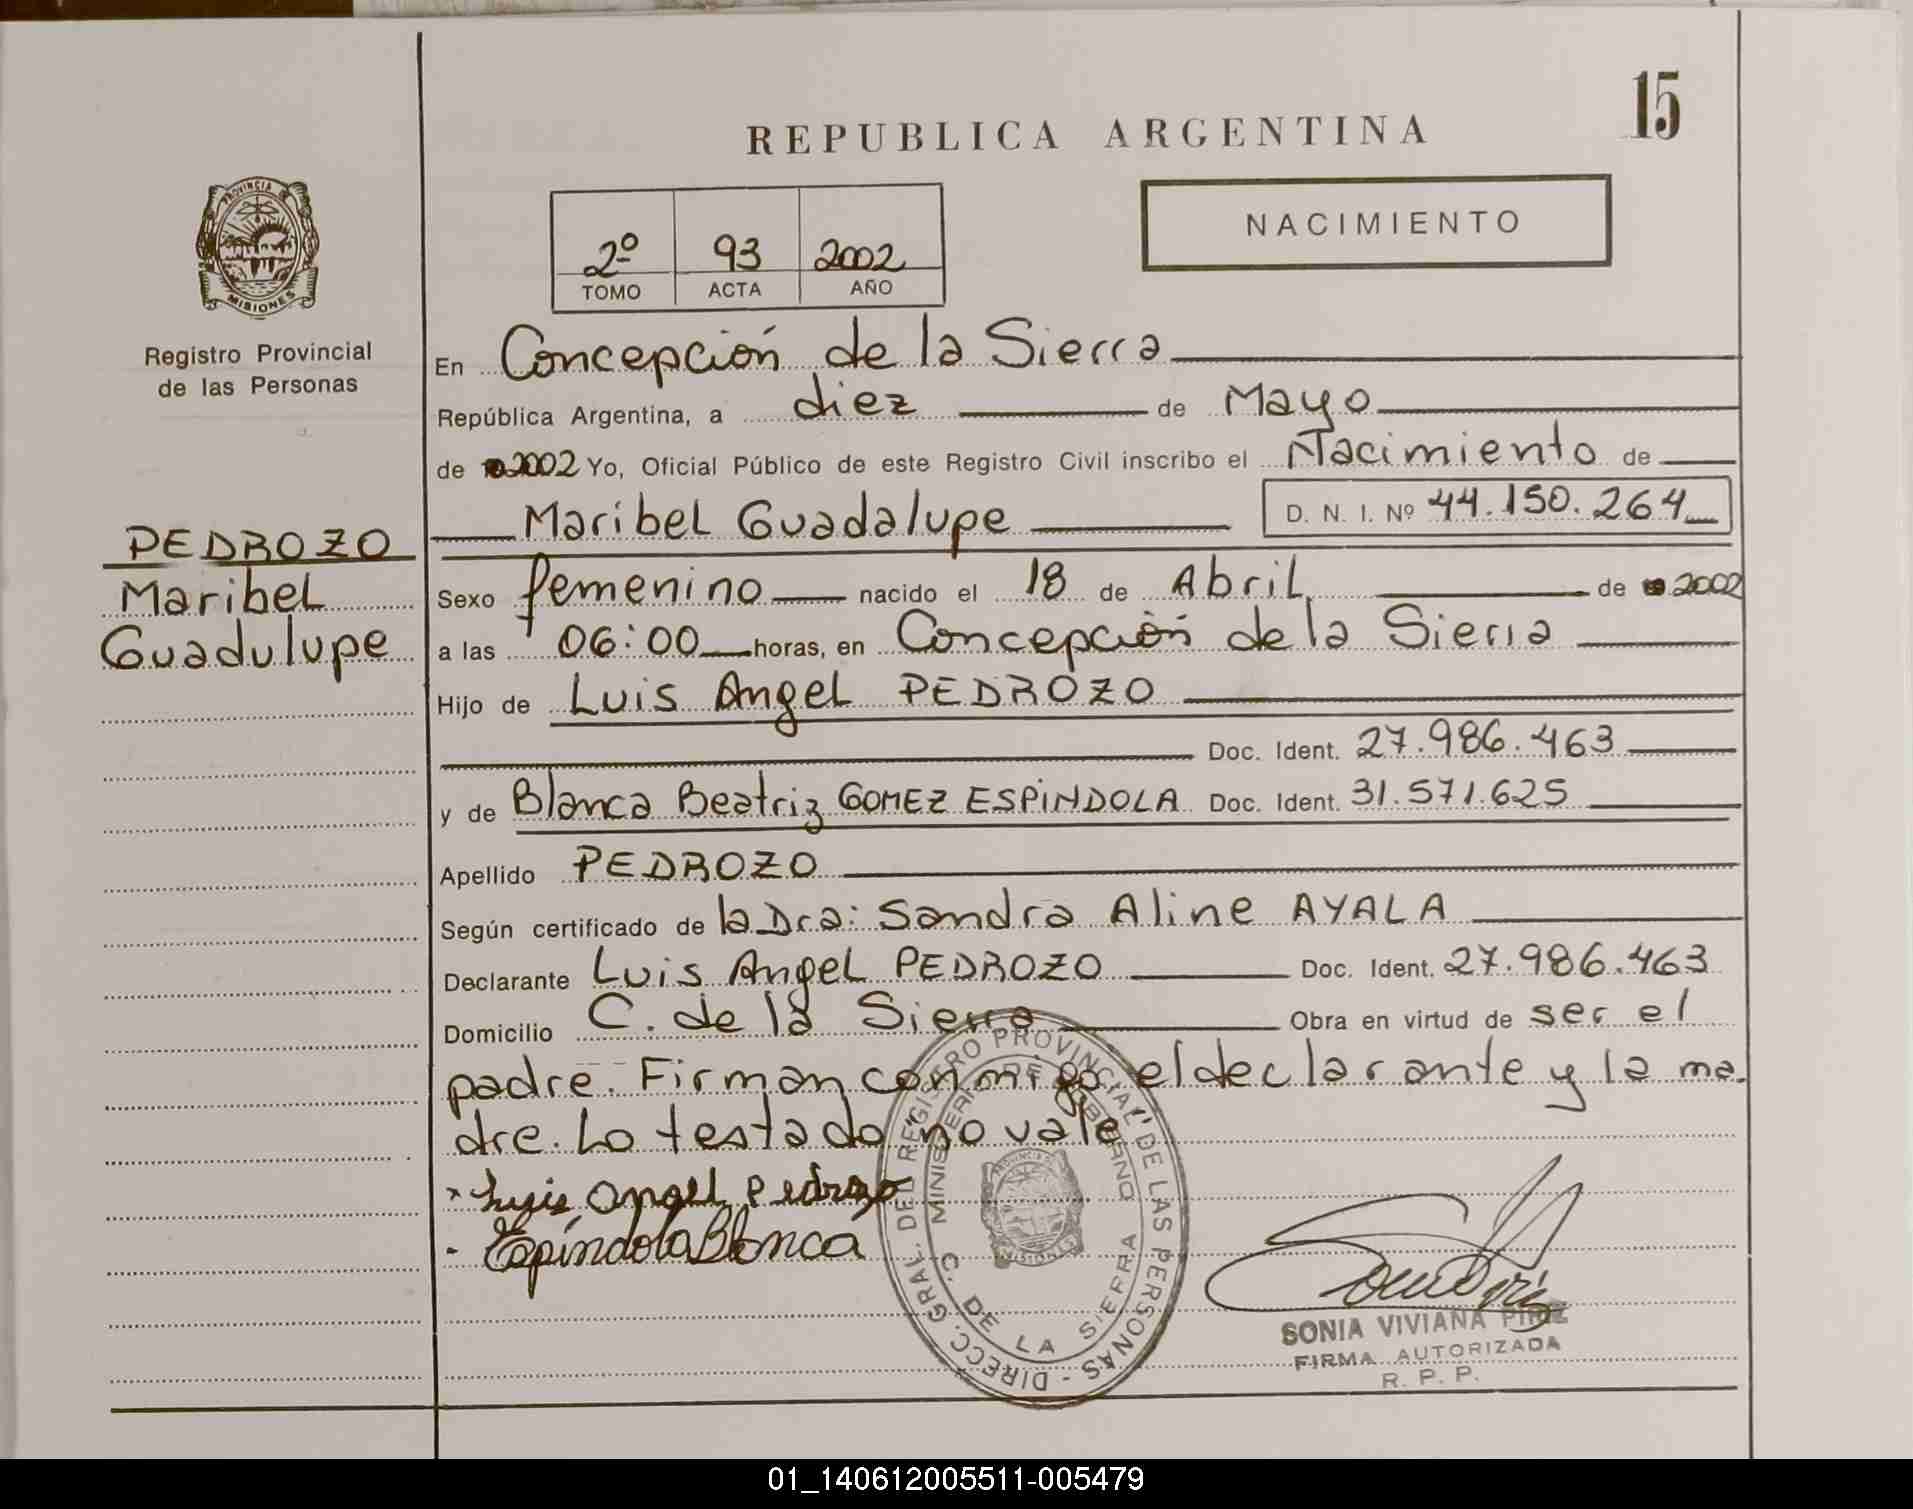 15
REPUBLICA ARGENTINA
NACIMIENTO
2º 93 2002
TOMO ACTA AÑO
PROVINCIA DE
MISIONES
Registro Provincial
de las Personas
En Concepción de la Sierra
República Argentina, a diez de Mayo
de 2002 Yo, Oficial Público de este Registro Civil inscribo el Nacimiento de
Maribel Guadalupe D. N. I. Nº 44.150.264
PEDROZO
Maribel
Guadulupe
Sexo femenino nacido el 18 de Abril de 2002
a las 06:00 horas, en Concepción de la Sierra
Hijo de Luis Angel PEDROZO
Doc. Ident. 27.986.463
y de Blanca Beatriz GOMEZ ESPINDOLA Doc. Ident. 31.571.625
Apellido PEDROZO
Según certificado de la Dra: Sandra Aline AYALA
Declarante Luis Angel PEDROZO Doc. Ident. 27.986.463
Domicilio C. de la Sierra Obra en virtud de ser el
padre. Firman conmigo el declarante y la ma-
dre. Lo testado no vale
Luis Angel Pedrozo
Espíndola Blanca
DIRECC. GRAL. DEL REGISTRO PROVINCIAL DE LAS PERSONAS -
MINISTERIO DE GOBIERNO
C. DE LA SIERRA
PROVINCIA
MISIONES
SONIA VIVIANA PIRIZ
FIRMA AUTORIZADA
R. P. P.
01_140612005511-005479